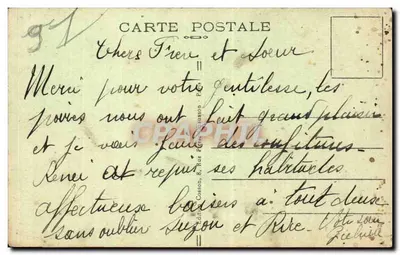 91
CARTE POSTALE
Chers Frere et Soeur
Merci pour votre gentilesse, les
poires nous ont fait grand plaisir
et je vais faire des confitures
René at repris ses habitudes
affectueux baisers à tout deux
sans oublier Suzon et Rire. Votre soeur